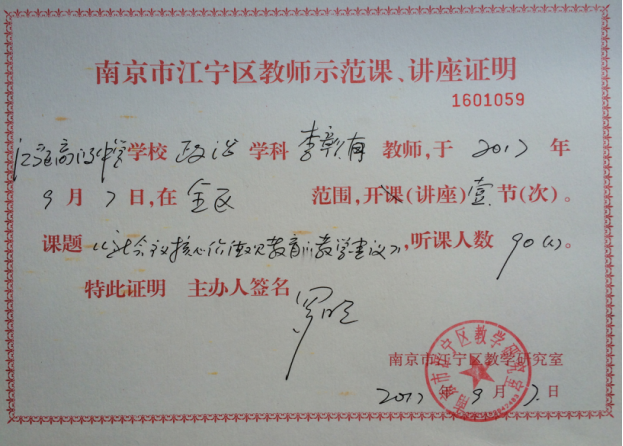 南京市江宁区教师示范课、讲座证明
1601059
江宁高级中学学校 政治 学科 李彰有 教师,于 2017 年
9 月 7 日,在 全区 范围,开课(讲座)壹节(次)。
课题 《社会主义核心价值观教育的教学建议》,听课人数 90(人)。
特此证明 主办人签名
南京市江宁区教学研究室
2017 9 月 7 日